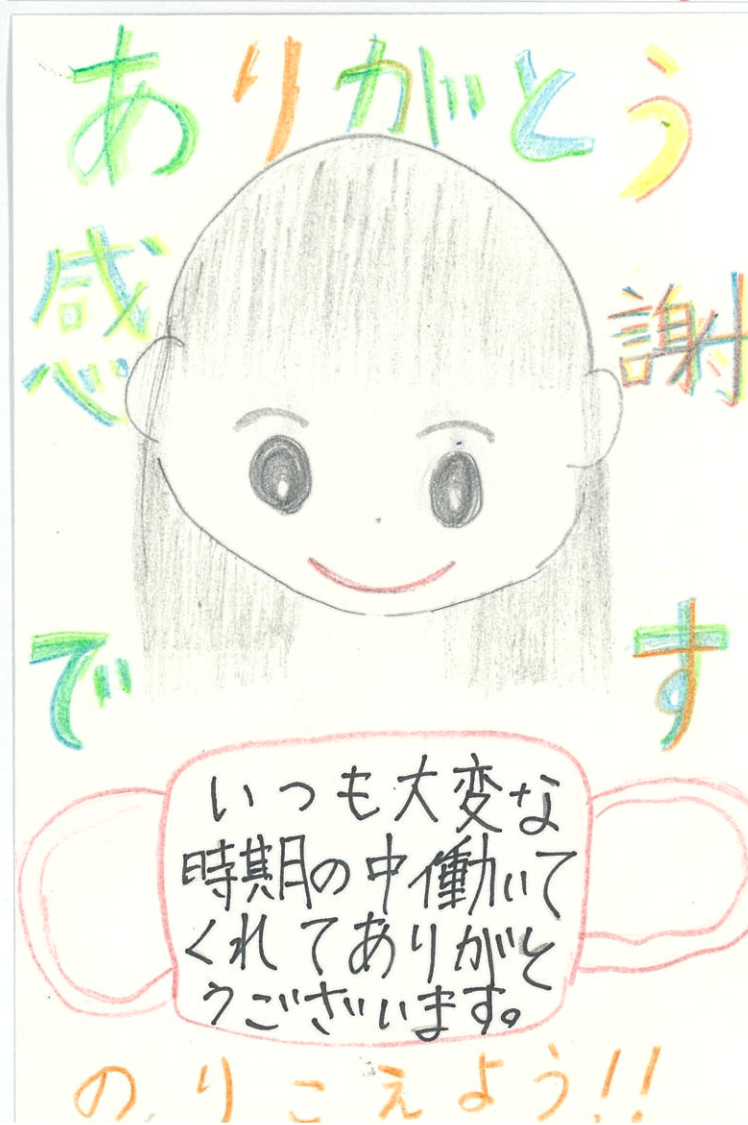 ありがとう
感謝
です
いつも大変な
時期の中働いて
くれてありがと
うございます。
のりこえよう!!